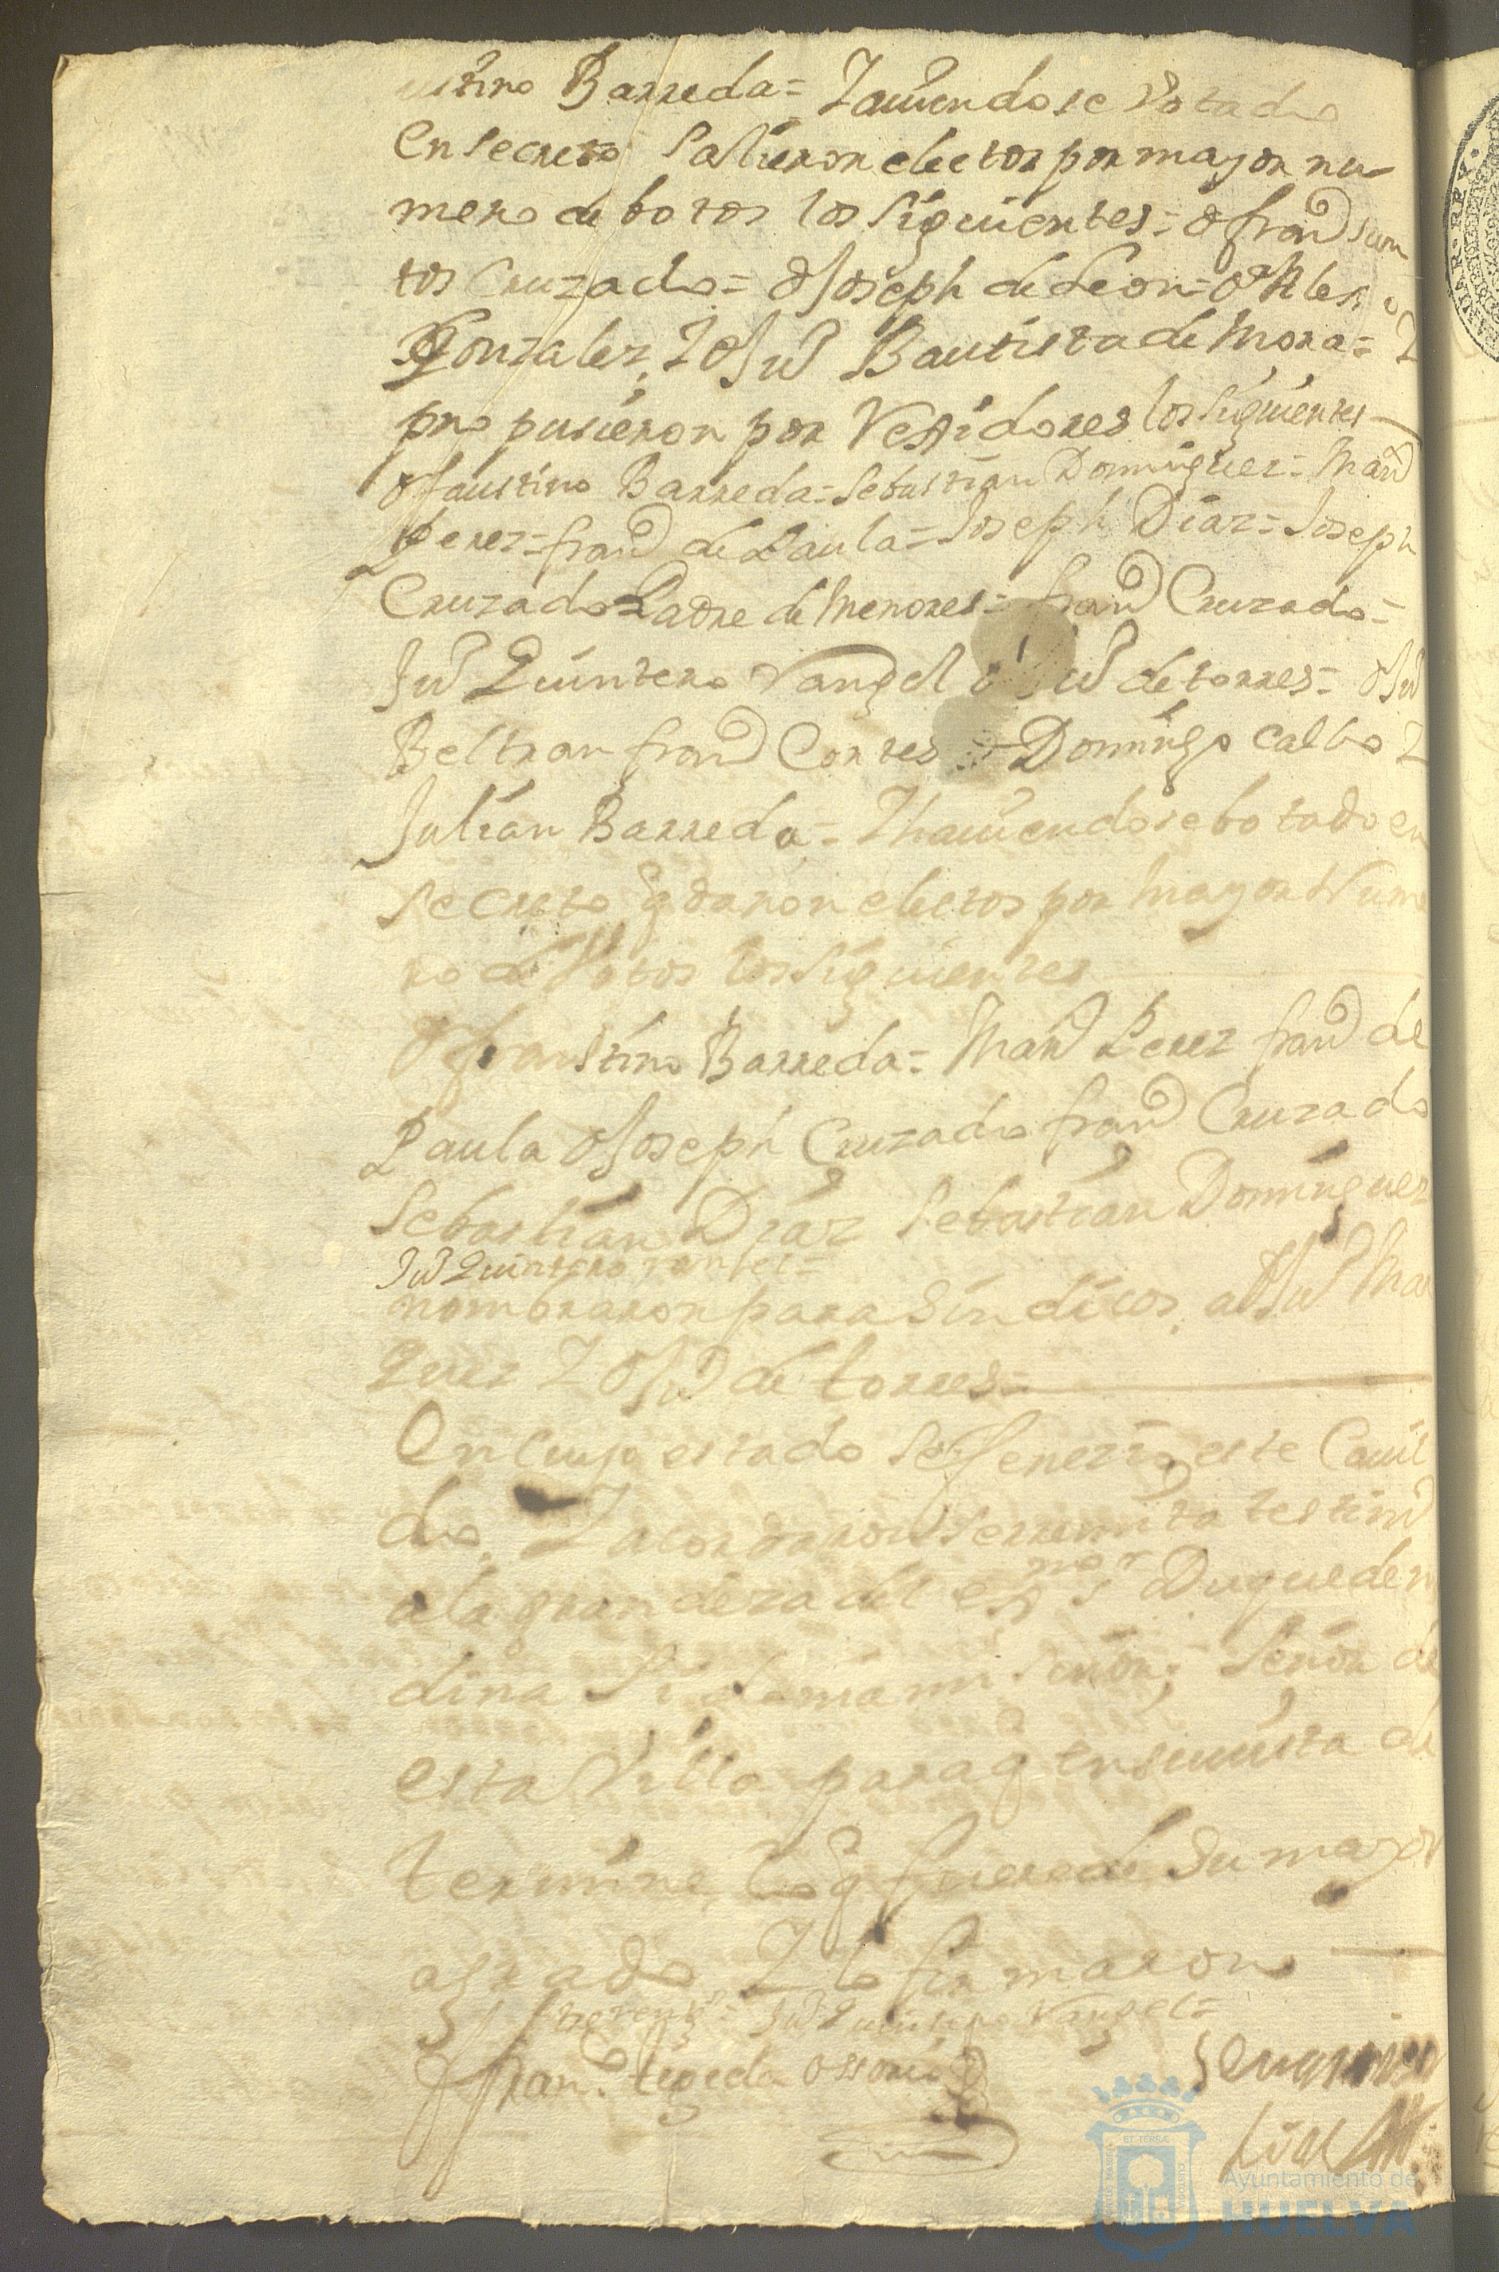 ustino Barreda= Y aviendose Votado
en secreto Salieron electos por mayor nu-
mero de botos los siguientes= Dn franco San
tos Cruzado= Dn Joseph de Leon= Dn Alexo
Gonzalez, Y Dn Jun Bautista de Mora= Y
propusieron por Rexidores los siguientes
Dn faustino Barreda= Sebastian Dominguez= Manl
Perez= franco de Paula= Joseph Diaz= Joseph
Cruzado Padre de Menores= franco Cruzado=
Jun Quintero Vangel Dn Jun de torres= Dn Jun
Beltran franco Cortes = Domingo Calbo Y
Julian Barreda= Y haviendose botado en
secreto qdaron electos por mayor Nume
ro de Votos los siguientes
Dn faustino Barreda= Manl Perez franco de
Paula Dn Joseph Cruzado franco Cruzado
Sebastian Diaz Sebastian Dominguez
Jun Quintero vangel=
nombraron para Sindicos a Dn Jun Mar
quez Y Dn Jun de torres=
En cuyo estado se fenezio este Cavil
do Y acordaron se rremita testimo
a la grandeza del exmo sr Duque de me
dina Sidonia mi señor, Señor de
esta Villa para q en su vista de
termine lo q fuere de su mayor
agrado Y lo firmaron
Jun Quintero Vangel=
Franco texeda ossorio
Ayuntamiento de
HUELVA